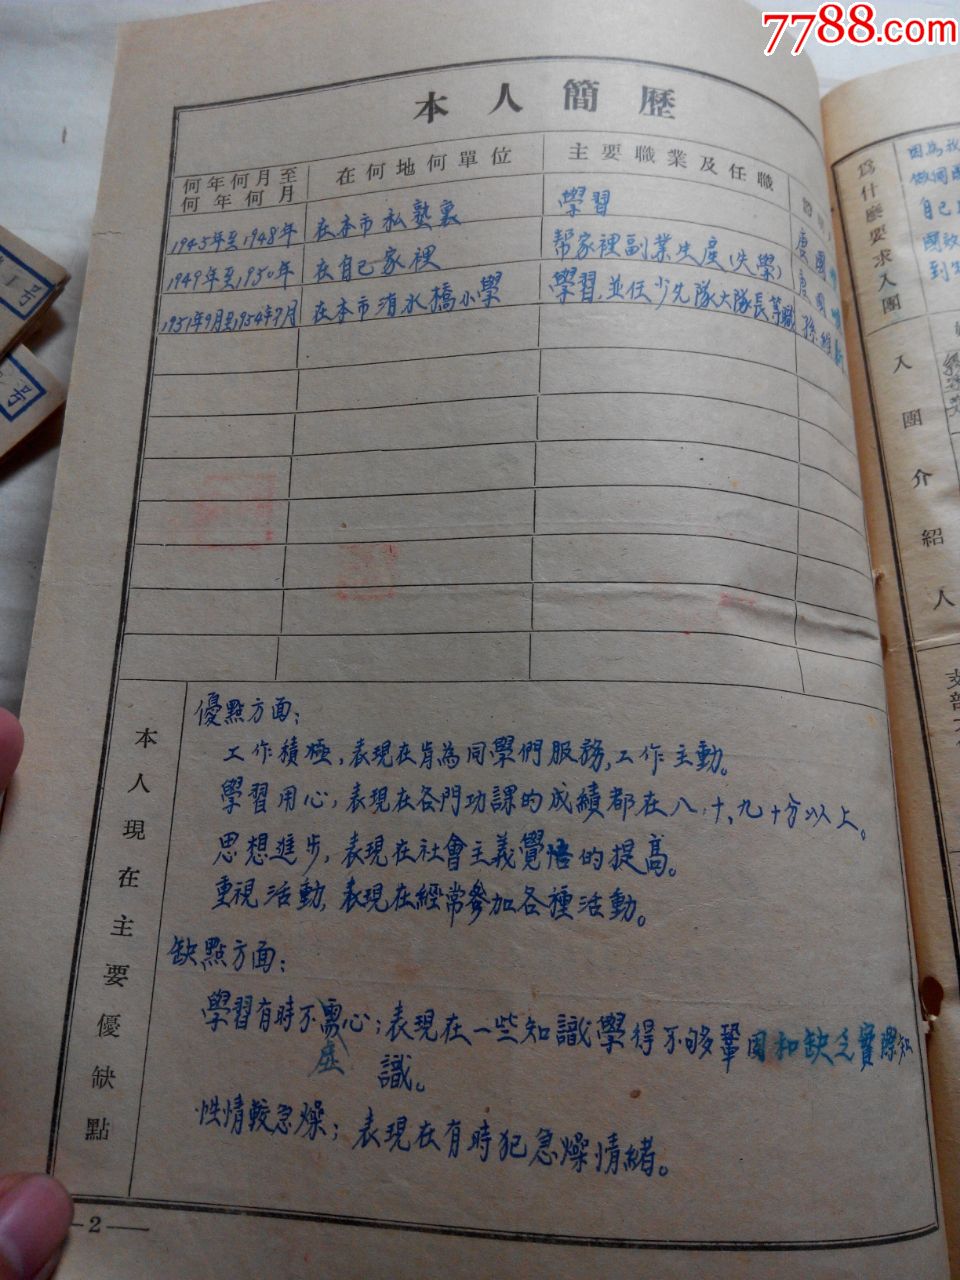 7788.com
本人簡歷
何年何月至
何年何月
在何地何單位
主要職業及任職
1945年至1948年 在本市私塾裏 學習
1949年至1950年 在自己家裡 帮家裡副業生產(失學)
1951年9月至1954年7月 在本市清水橋小學 學習,並任少先隊大隊長等職
本人現在主要優缺點
優點方面:
工作積極,表現在肯為同學們服務,工作主動。
學習用心,表現在各門功課的成績都在八十、九十分以上。
思想進步,表現在社會主義覺悟的提高。
重視活動,表現在經常參加各種活動。
缺點方面:
學習有時不虛心;表現在一些知識學得不够鞏固和缺乏實際知
識。
性情較急燥;表現在有時犯急燥情緒。
—2—
為什麼要求入團
因為我
自己
到
入團介紹人